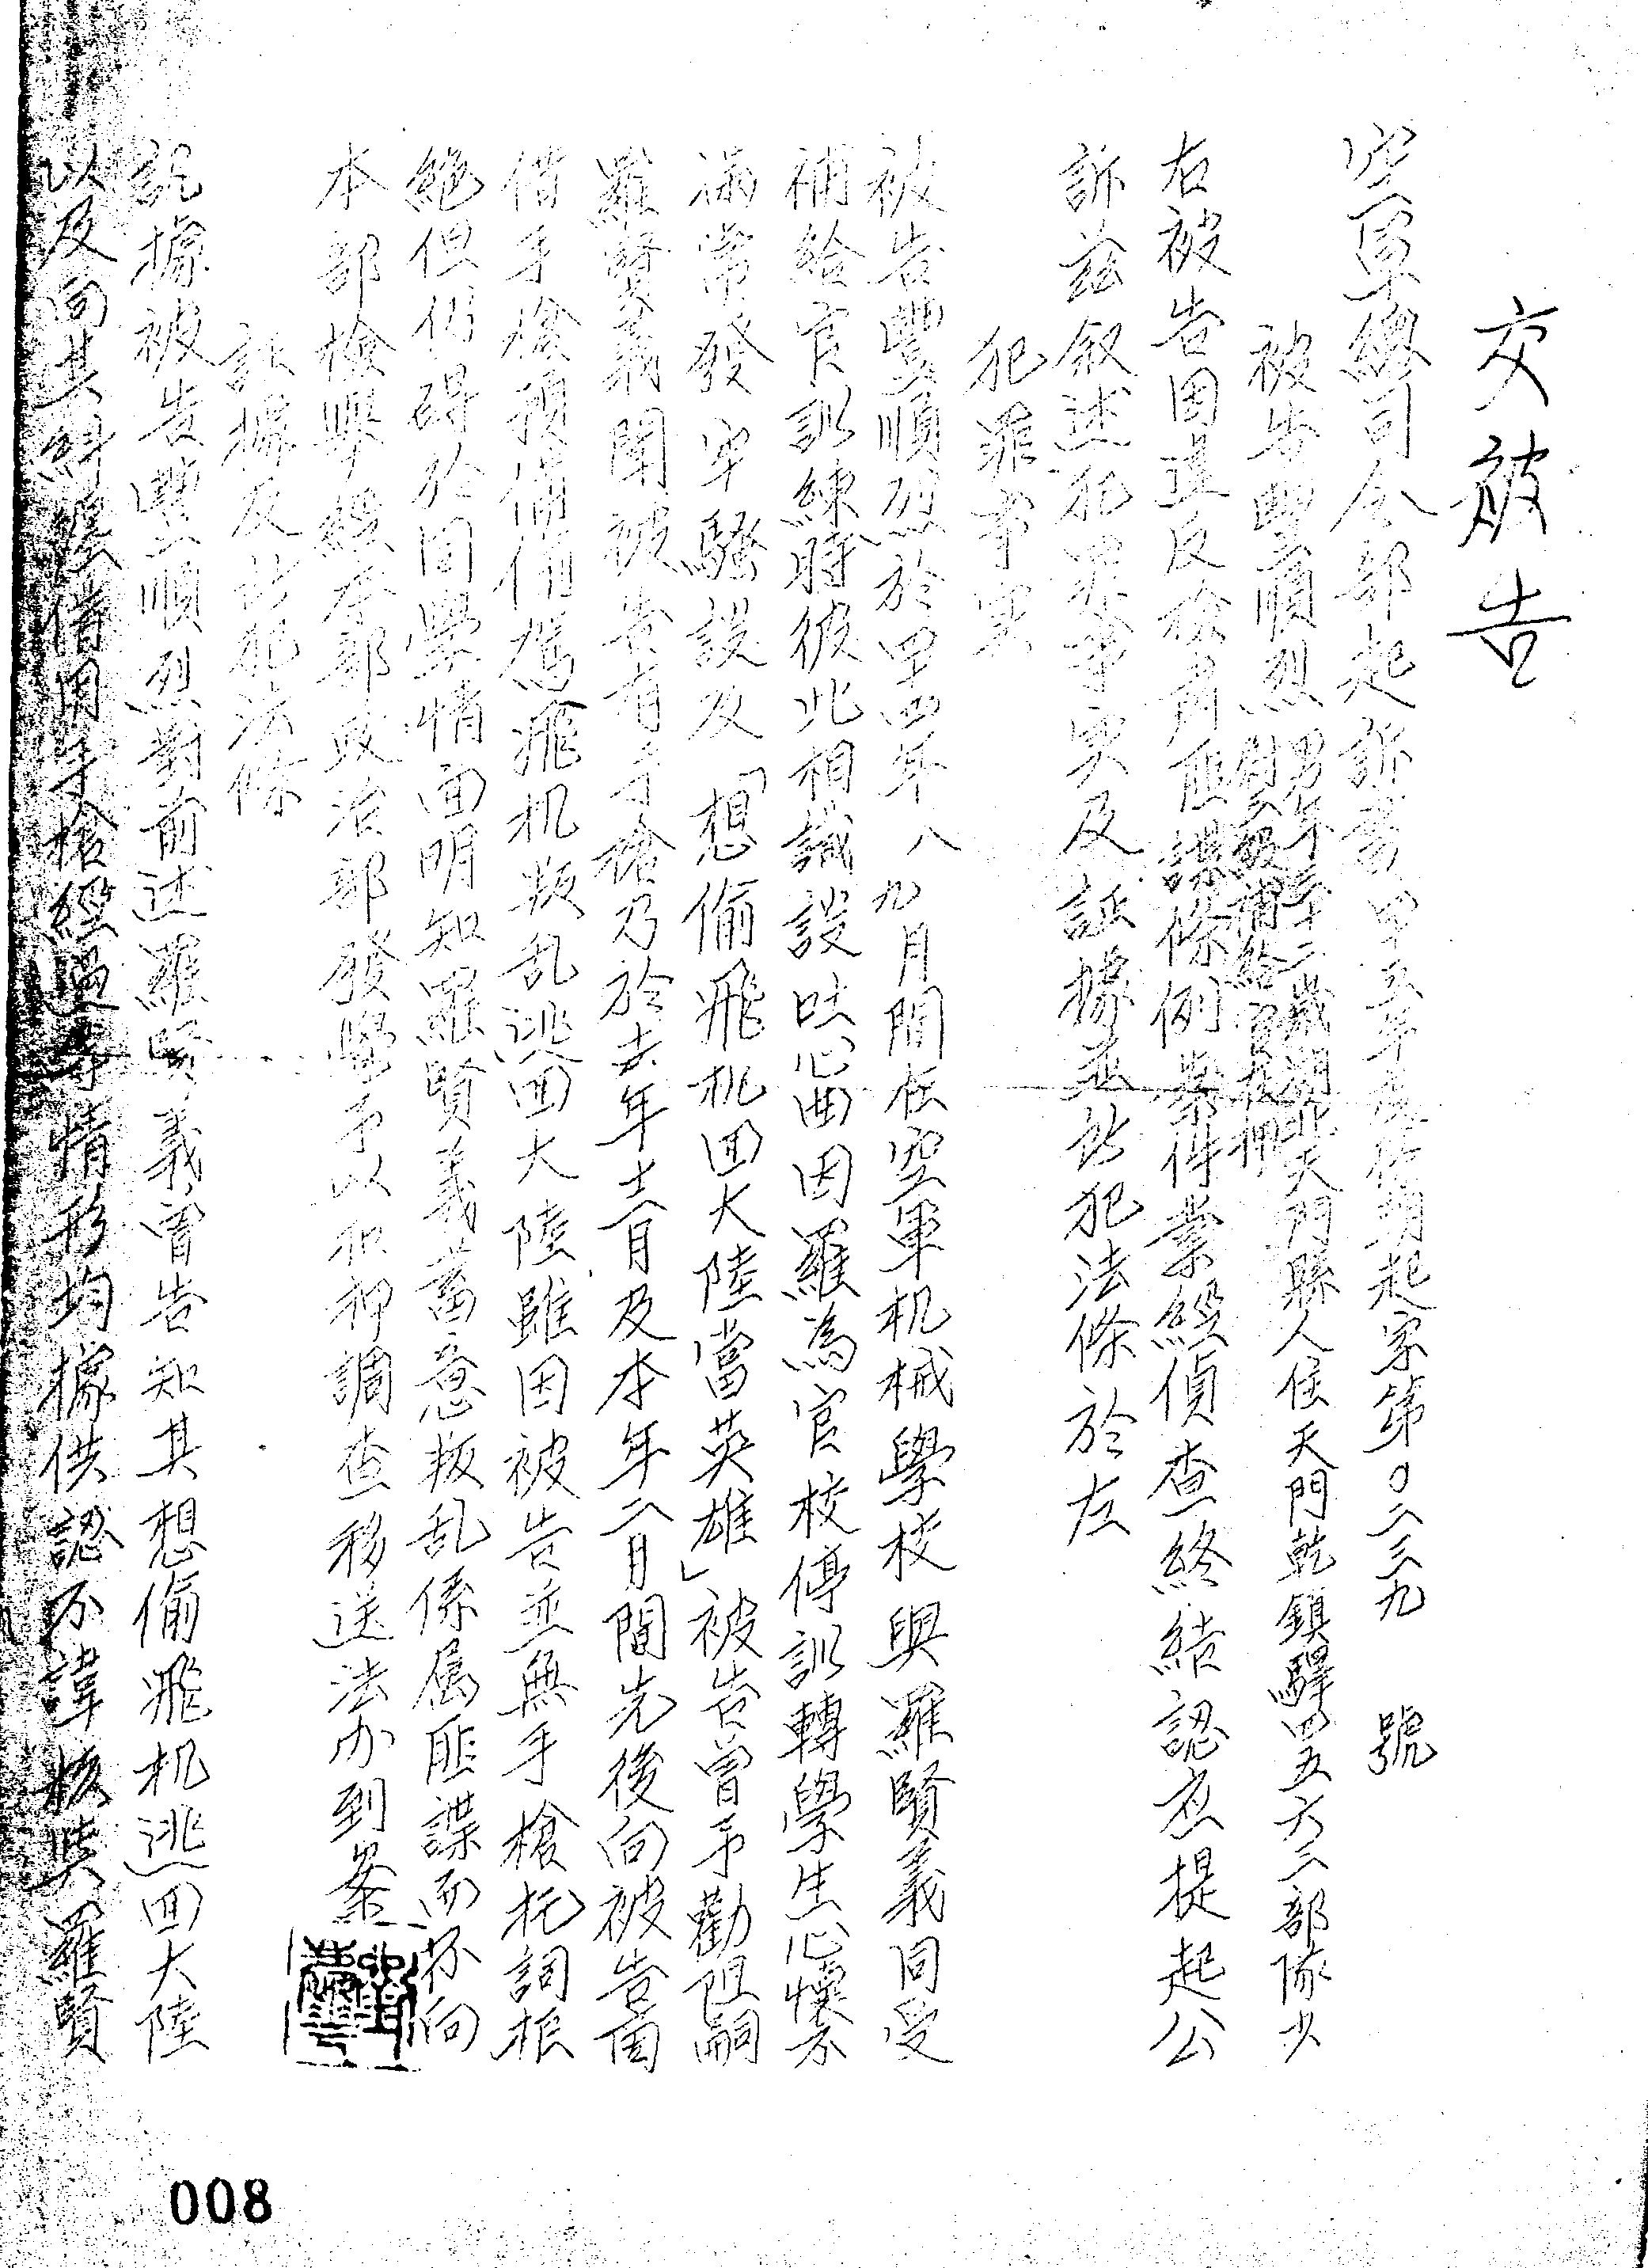 交被告
空軍總司令部起訴書 四十五年度偵翊起字第〇二三九 號
被告 豐順烈 男年三十二歲湖北天門縣人住天門乾鎮驛四五六三部隊少
尉三級補給官在押
右被告因違反檢肅匪諜條例案件業經偵查終結認应提起公
訴茲叙述犯罪事实及証據並所犯法條於左
犯罪事実
被告豐順烈於四十四年八九月間在空軍机械學校與羅賢義同受
補給官訓練時彼此相識談吐心曲因羅為官校停訓轉學生心懷不
滿常發牢騷談及「想偷飛机回大陸當英雄」被告曾予勸阻嗣
羅賢義聞被告有手槍乃於去年十二月及本年二月間先後向被告面
借手槍預備偷駕飛机叛乱逃回大陸雖因被告並無手槍托詞拒
絕但仍碍於同學情面明知羅賢義蓄意叛乱係属匪諜而不向
本部檢舉經本部政治部發覺予以扣押調查移送法办到案
証據及所犯法條
訊據被告豐順烈對前述羅賢義曾告知其想偷飛机逃回大陸
以及向其料借用手槍經過等情形均據供認不諱核與羅賢
008